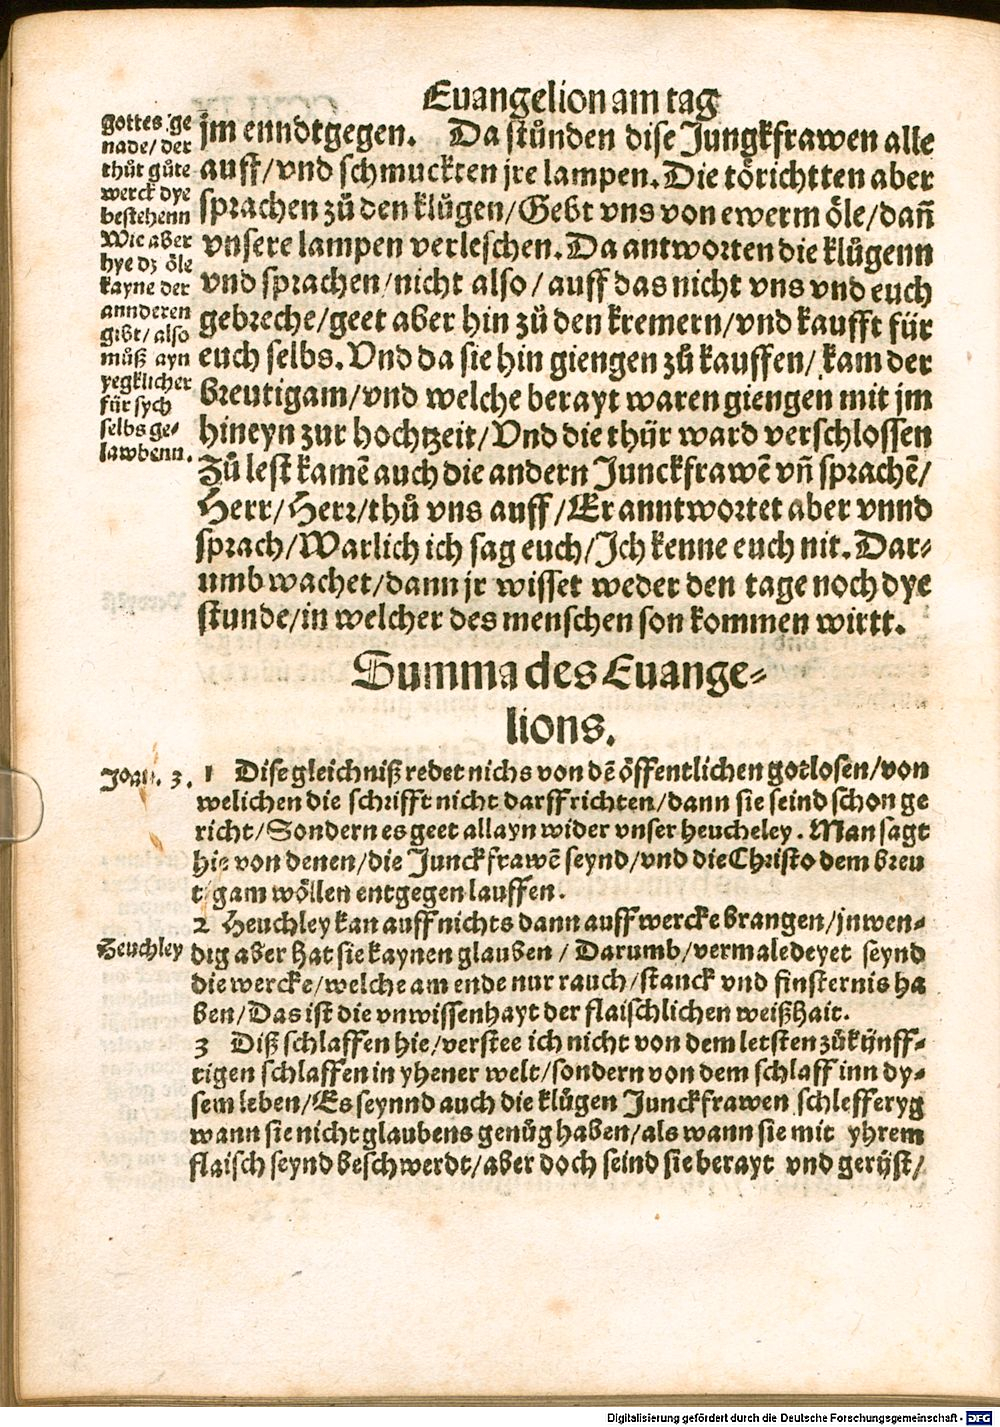 Euangelion am tag
gottes ge
nade/ der
thůt gůte
werck dye
bestehenn
Wie aber
hye dz öle
kayne der
annderen
gibt/ also
můß ayn
yegklicher
für sych
selbs ge-
lawbenn.
jm enndtgegen. Da stůnden dise Jungkfrawen alle
auff/vnd schmuckten jre lampen. Die törichtten aber
sprachen zů den klůgen/Gebt vns von ewerm öle/dañ
vnsere lampen verleschen. Da antworten die klůgenn
vnd sprachen/nicht also/ auff das nicht vns vnd euch
gebreche/geet aber hin zů den kremern/vnd kaufft für
euch selbs. Vnd da sie hin giengen zů kauffen/ kam der
breutigam/vnd welche berayt waren giengen mit jm
hineyn zur hochtzeit/Vnd die thür ward verschlossen
Zů lest kamē auch die andern Junckfrawē vñ sprachē/
Herr/Herr/thů vns auff/Er anntwortet aber vnnd
sprach/Warlich ich sag euch/Ich kenne euch nit. Dar-
umb wachet/dann jr wisset weder den tage noch dye
stunde/in welcher des menschen son kommen wirtt.
Summa des Euange-
lions.
Joan. 3.
1 Dise gleichniß redet nichs von dē öffentlichen gotlosen/von
welichen die schrifft nicht darff richten/dann sie seind schon ge
richt/Sondern es geet allayn wider vnser heucheley. Man sagt
hie von denen/die Junckfrawē seynd/vnd die Christo dem breu
tigam wöllen entgegen lauffen.
2 Heuchley kan auff nichts dann auff wercke brangen/jnwen-
Heuchley
dig aber hat sie kaynen glauben/ Darumb/vermaledeyet seynd
die wercke/welche am ende nur rauch/stanck vnd finsternis ha
ben/Das ist die vnwissenhayt der flaischlichen weißhait.
3 Diß schlaffen hie/verstee ich nicht von dem letsten zůkünff-
tigen schlaffen in yhener welt/sondern von dem schlaff inn dy-
sem leben/Es seynnd auch die klůgen Junckfrawen schlefferyg
wann sie nicht glaubens genůg haben/als wann sie mit yhrem
flaisch seynd beschwerdt/aber doch seind sie berayt vnd gerüst/
Digitalisierung gefördert durch die Deutsche Forschungsgemeinschaft - DFG